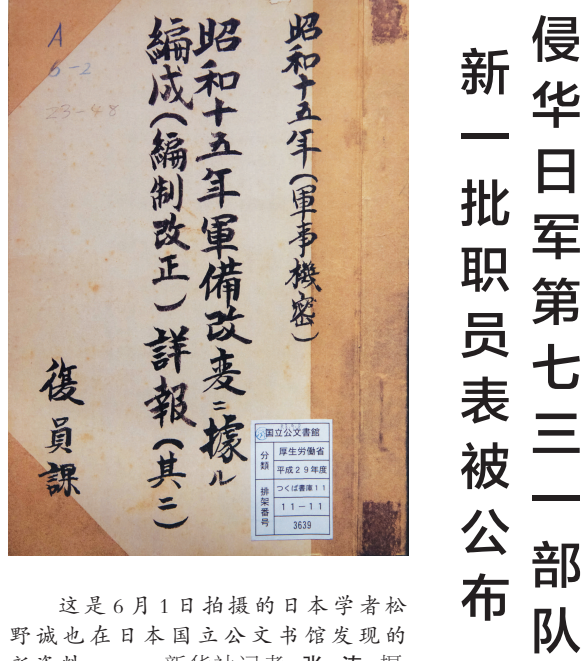 侵华日军第七三一部队
新一批职员表被公布
昭和十五年(軍事機密)
昭和十五年軍備改変ニ據ル
編成(編制改正)詳報(其二)
復員課
A
6-2
23-48
国立公文書館
分類
厚生労働省
平成29年度
排架番号
つくば書庫11
11-11
3639
这是6月1日拍摄的日本学者松
野诚也在日本国立公文书馆发现的